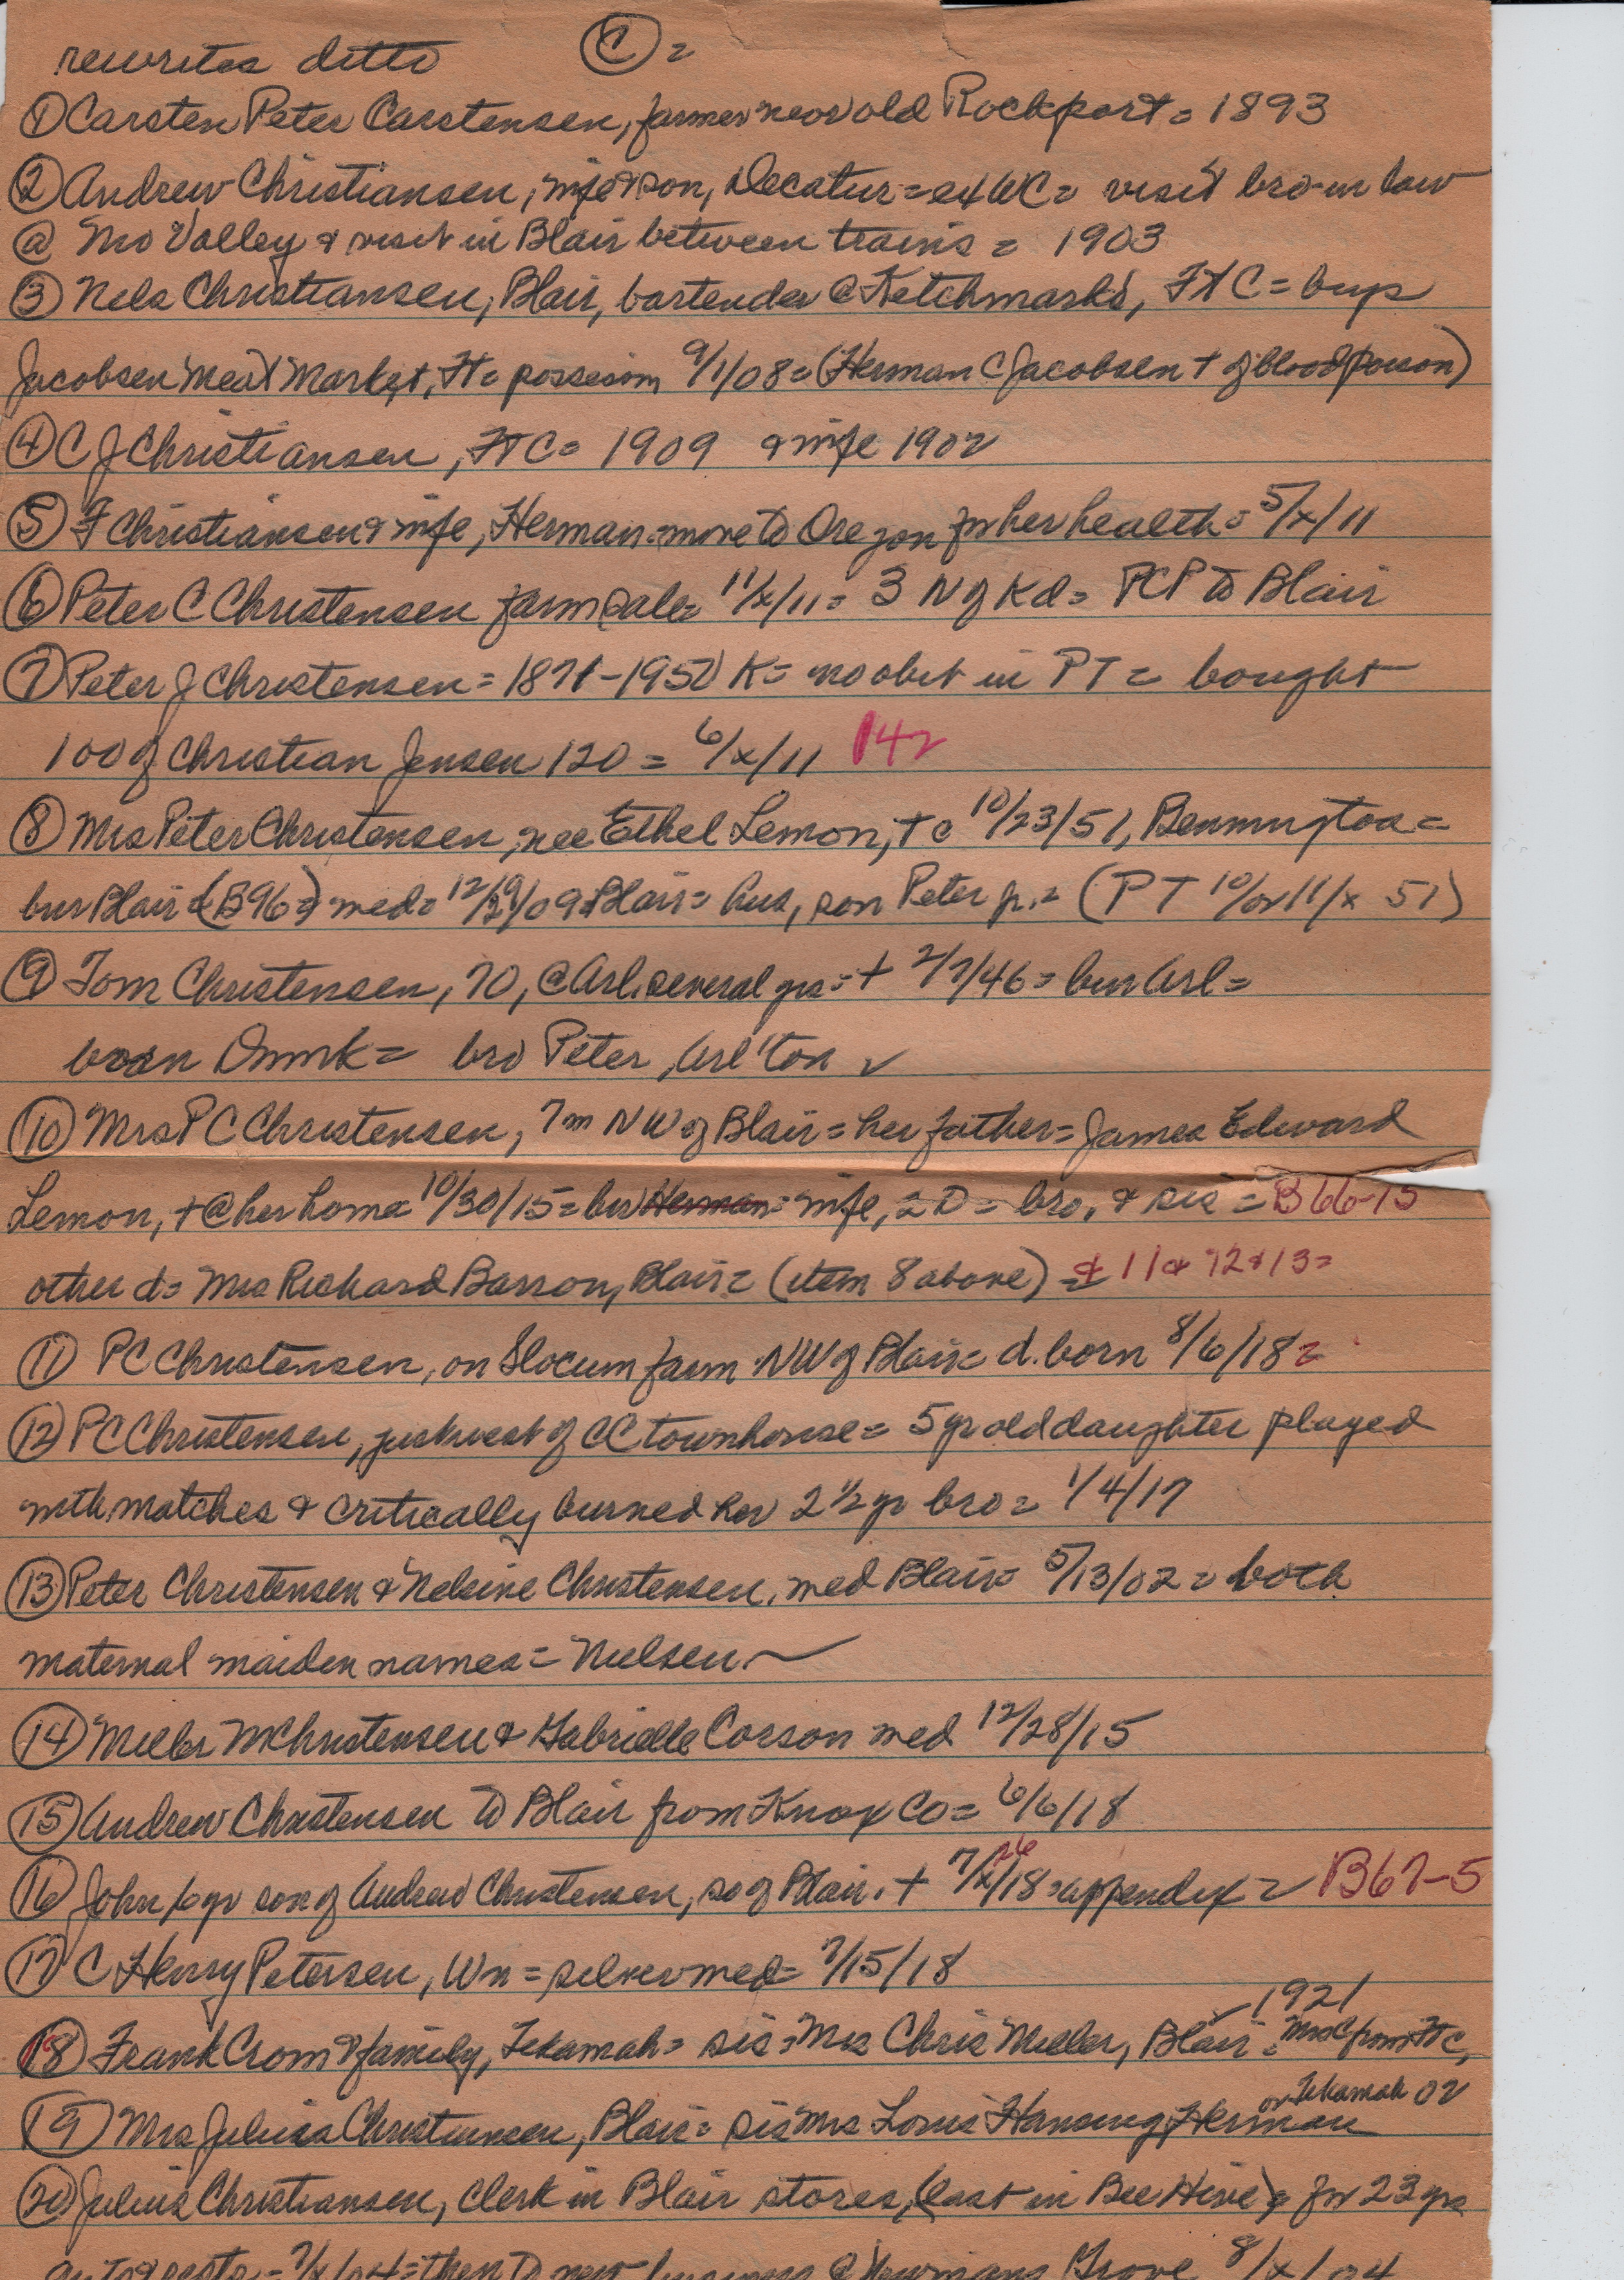 rewrites ditto (C) =
① Carsten Peter Carstensen, farmer near old Rockport = 1893
② Andrew Christiansen, wife & son, Decatur = ex WC = visit bro-in law
@ Mo Valley & visit in Blair between trains = 1903
③ Nels Christiansen, Blair, bartender @ Ketchmarks, FtC = buys
Jacobsen Meat Market, Ft = possesion 9/1/08 = (Herman C Jacobsen + of blood poison)
④ C J Christiansen, FtC = 1909 & wife 1902
⑤ F Christiansen & wife, Herman = move to Oregon for her health = 5/x/11
⑥ Peter C Christensen farm sale = 11/x/11 = 3 N of Kd = PCP to Blair
⑦ Peter J Christensen = 1871-1952 K = no obit in PT = bought
100 of Christian Jensen 120 = 6/x/11 142
⑧ Mrs Peter Christensen, nee Ethel Lemon, + c 10/23/51, Bennington =
bur Blair (B96 =) wed = 12/29/09 Blair = hus, son Peter jr. = (PT 10/or 11/x 51)
⑨ Tom Christensen, 70, @ Arl. several yrs = + 2/7/46 = bur Arl =
born Dnmk = bro Peter, Arl'ton ✓
⑩ Mrs P C Christensen, 7m NW of Blair = her father = James Edward
Lemon, + @ her home = 10/30/15 = bur Herman = wife, 2 D = bro, & sis = B66-15
other d = Mrs Richard Barson, Blair = (item 8 above) = & 11 & 12 & 13 =
⑪ PC Christensen, on Slocum farm NW of Blair = d. born 8/6/18 =
⑫ PC Christensen, just west of CC townhouse = 5 yr old daughter played
with matches & critically burned her 2 ½ yr bro = 1/4/17
⑬ Peter Christensen & Nelsine Christensen, wed Blair = 5/13/02 = both
maternal maiden names = Nielsen
⑭ Miller M Christensen & Gabrielle Corson wed 12/28/15
⑮ Andrew Christensen to Blair from Knox Co = 6/6/18
⑯ John 6 yr son of Andrew Christensen, so of Blair, + 7/x/18 26 = appendix = B67-5
⑰ C Henry Petersen, Wn = silver wed = 7/15/18
⑱ Frank Crom & family, Tekamah = sis = Mrs Chris Miller, Blair = 1921 Mrs C from FtC,
⑲ Mrs Julius Christiansen, Blair = sis Mrs Louis Hansen of Herman or Tekamah 02
⑳ Julius Christiansen, clerk in Blair stores, (last in Bee Hive) & for 23 yrs
7/x/04 = then to new business @ Newmans Grove 8/x/04